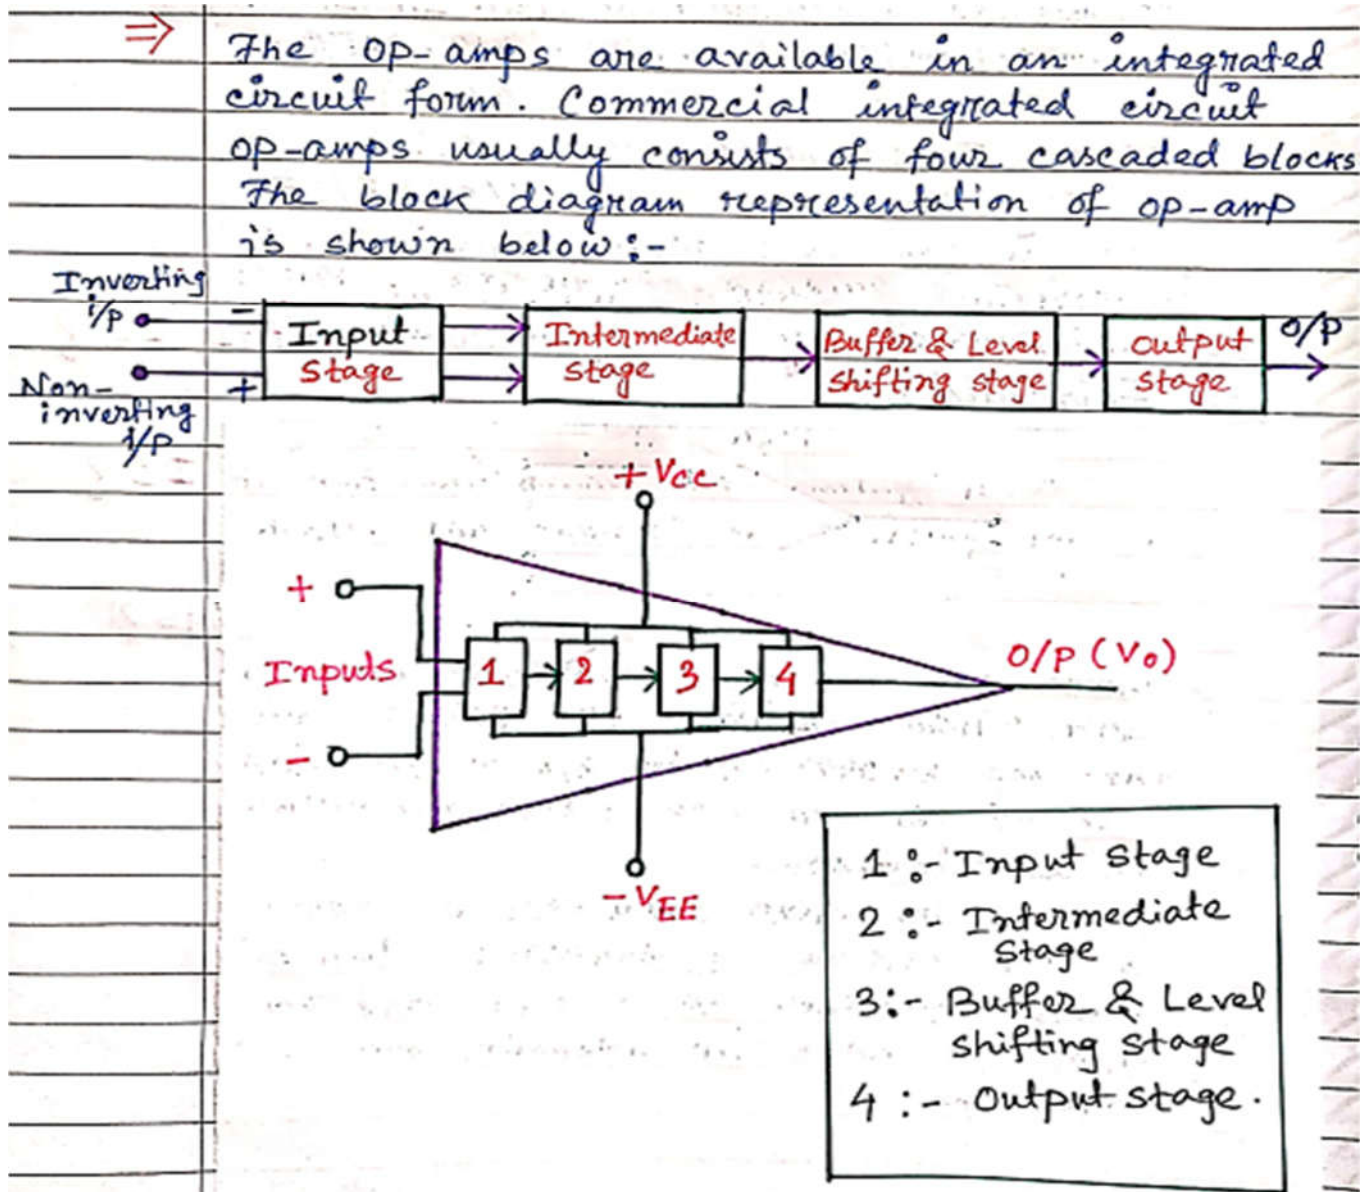 ⇒ The op-amps are available in an integrated
circuit form. Commercial integrated circuit
op-amps usually consists of four cascaded blocks
The block diagram representation of op-amp
is shown below:-
Inverting
i/p
-
Non-
inverting
i/p
+
Input
stage
Intermediate
stage
Buffer & Level
shifting stage
output
stage
O/P
+Vcc
+
Inputs
-
1
2
3
4
O/P (Vo)
-VEE
1:- Input stage
2:- Intermediate
stage
3:- Buffer & Level
shifting stage
4:- Output stage.